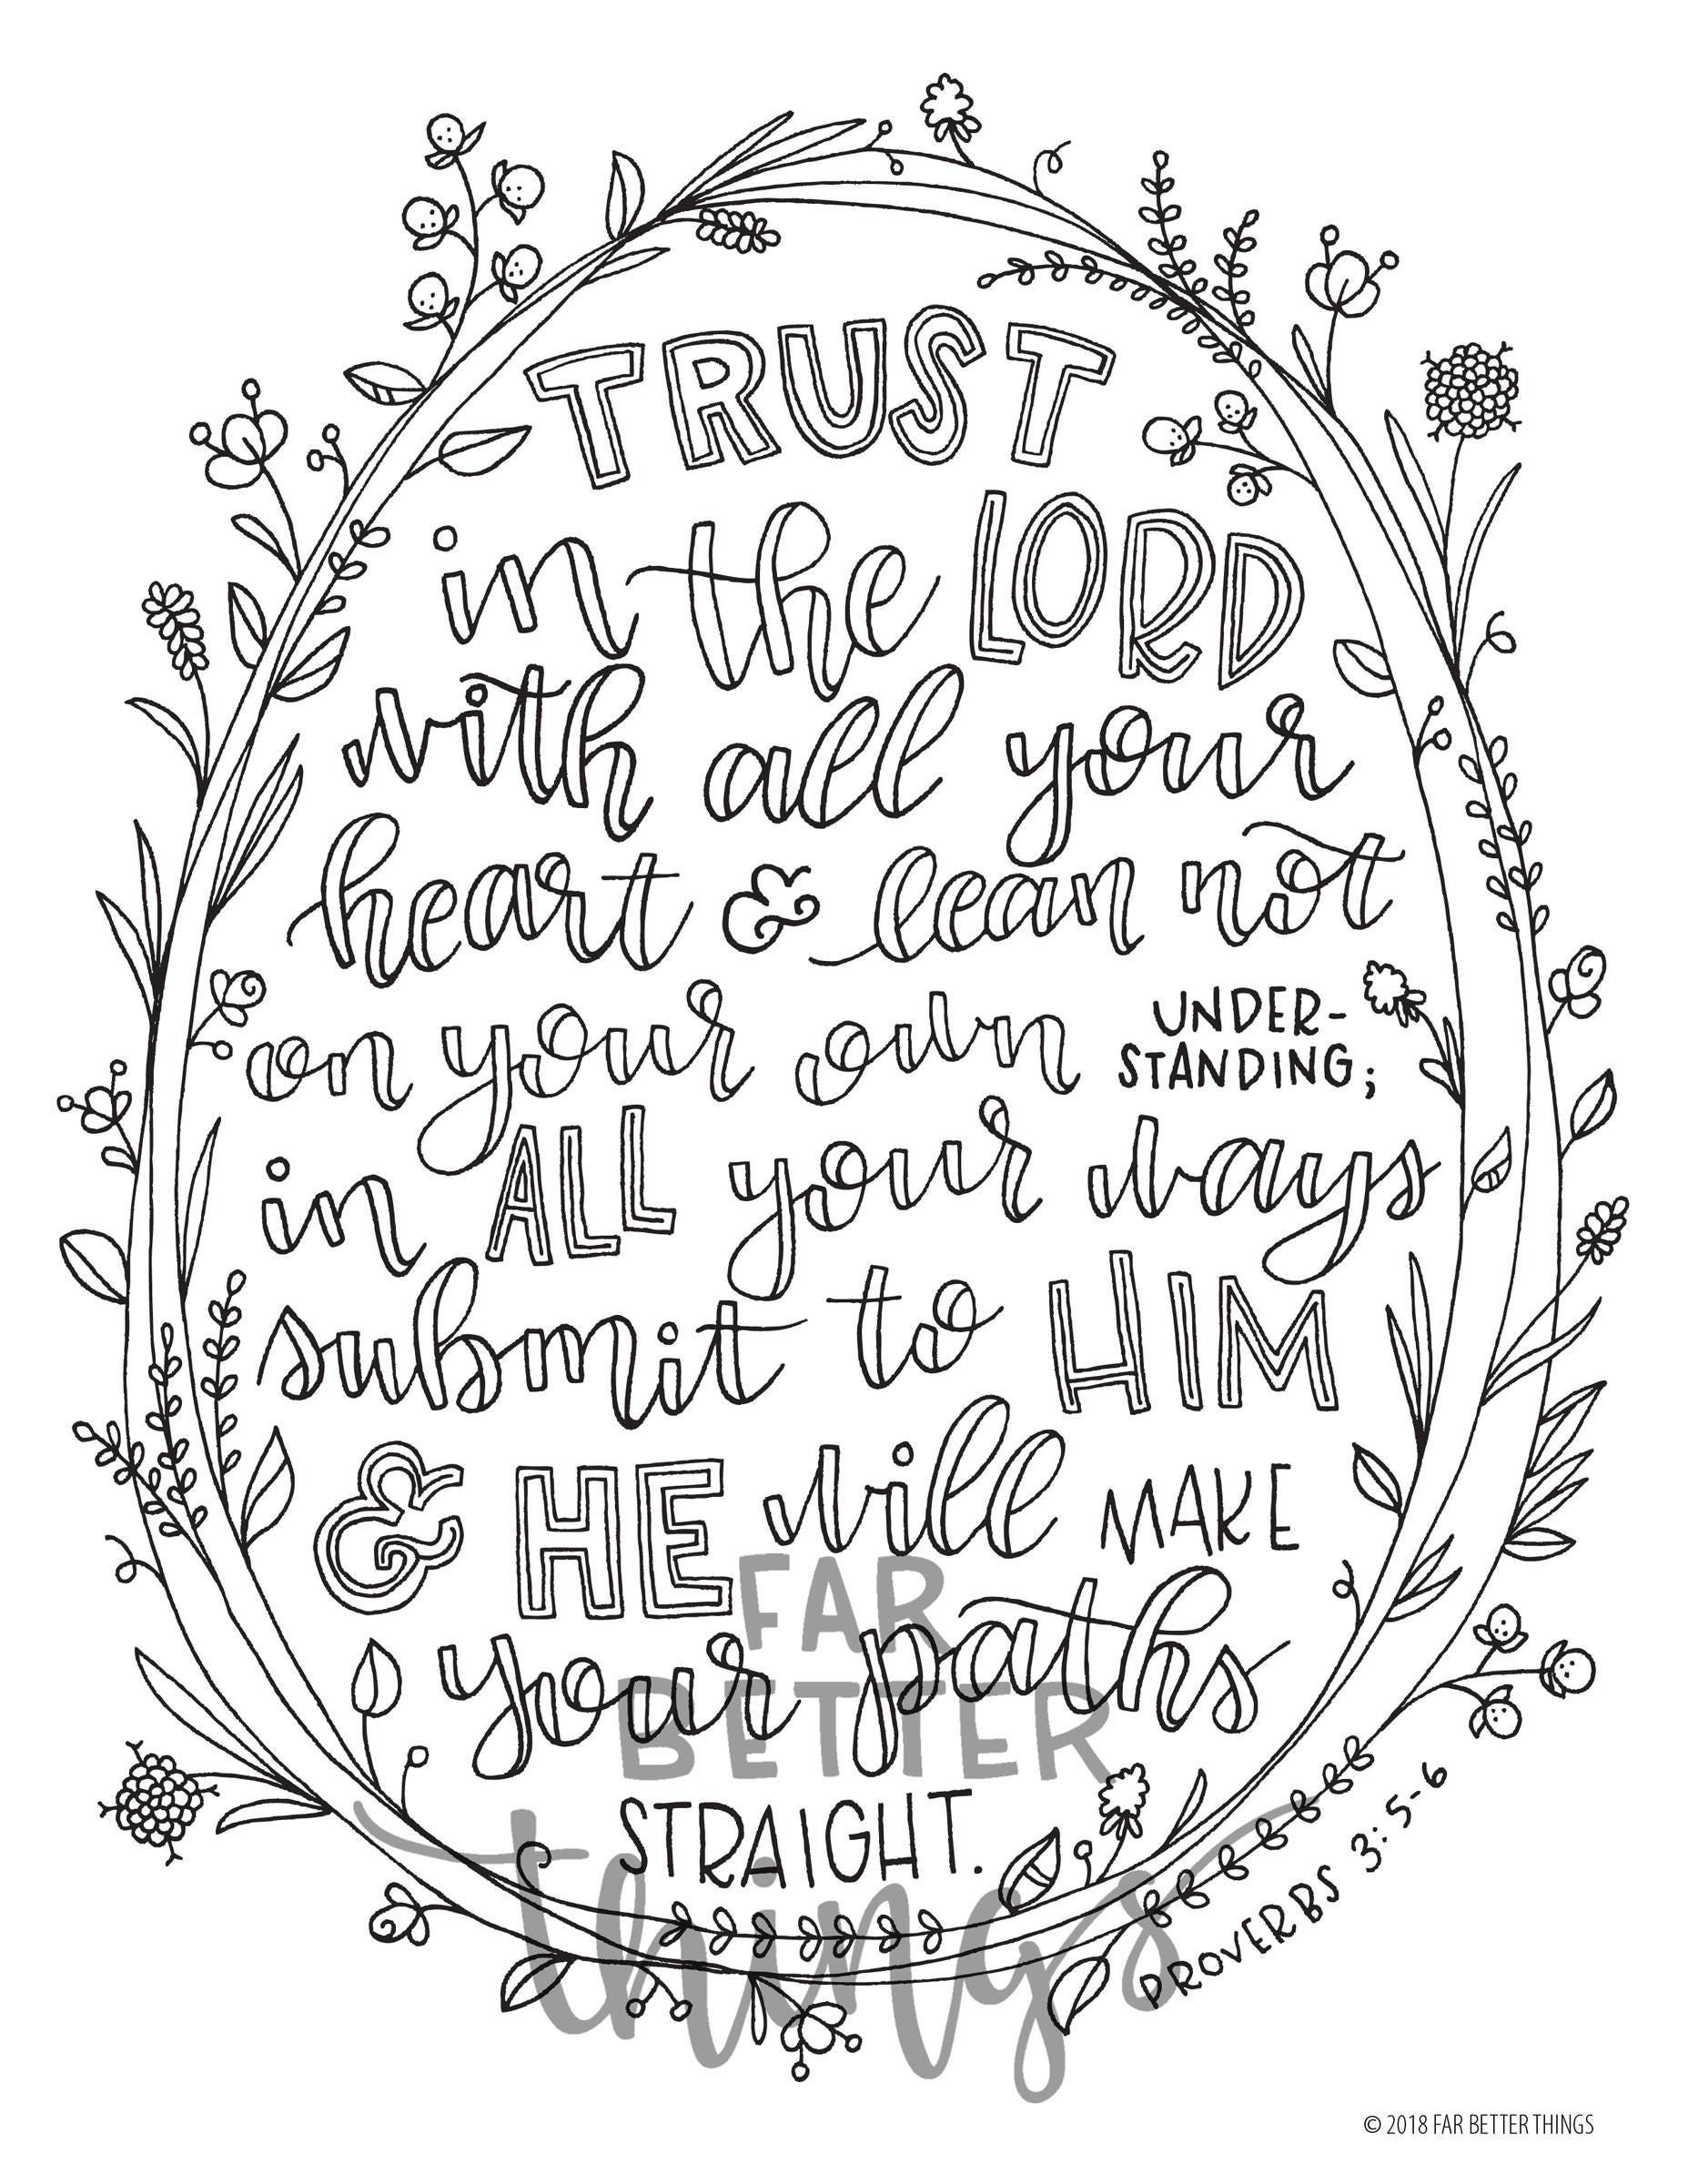 TRUST
in the LORD
with all your
heart & lean not
on your own UNDER-
STANDING;
in ALL your ways
submit to HIM
& HE will MAKE
your paths
STRAIGHT.
PROVERBS 3:5-6
FAR
BETTER
things
© 2018 FAR BETTER THINGS